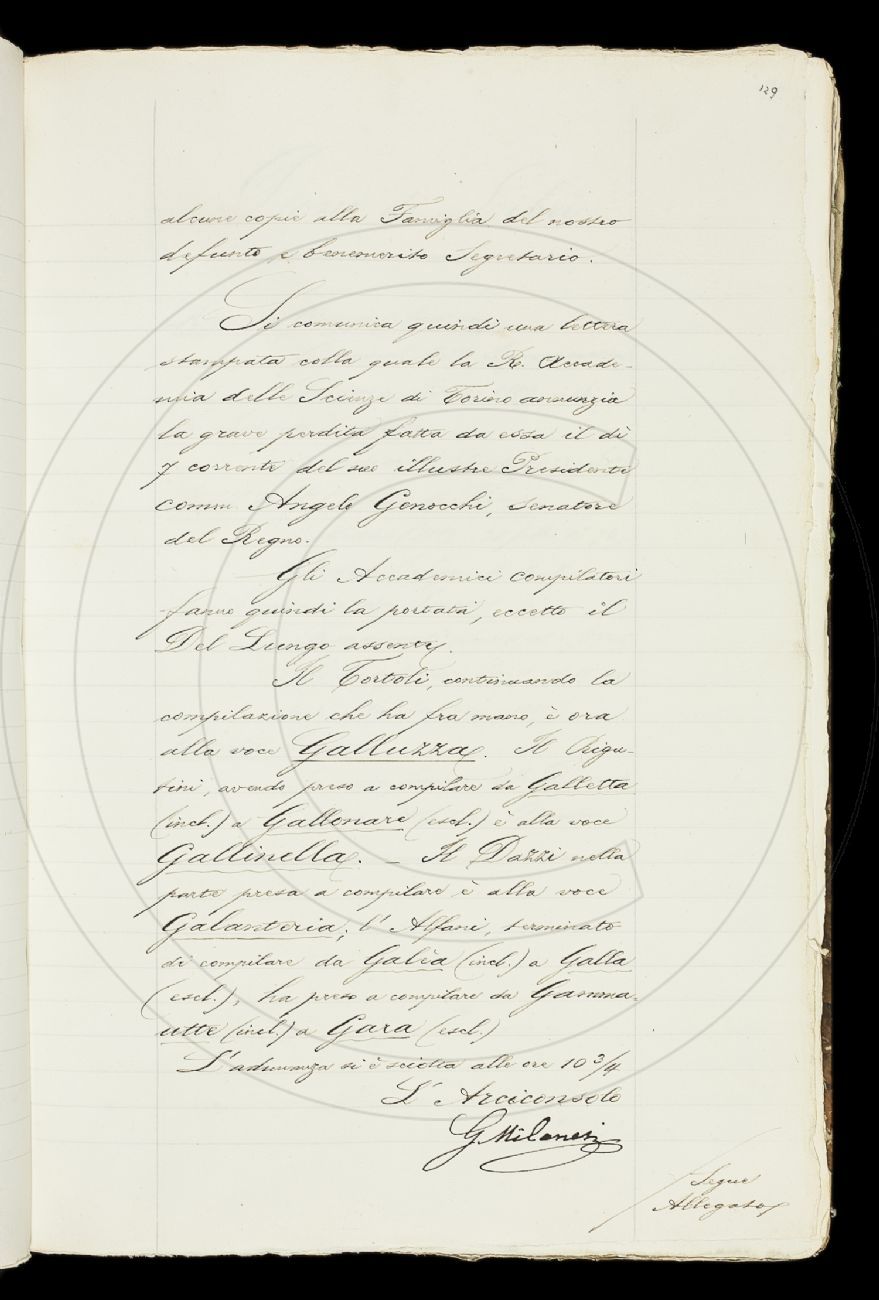 129
alcune copie alla Famiglia del nostro
defunto e benemerito Segretario.
Si comunica quindi una lettera
stampata colla quale la R. Accade-
mia delle Scienze di Torino annunzia
la grave perdita fatta da essa il dì
7 corrente del suo illustre Presidente
comm. Angelo Genocchi, senatore
del Regno.
Gli Accademici compilatori
fanno quindi la portata, eccetto il
Del Lungo assente.
Il Tortoli, continuando la
compilazione che ha fra mano, è ora
alla voce Galluzza. Il Rigu-
tini, avendo preso a compilare da Galletta
(incl.) a Gallonare (escl.) è alla voce
Gallinella. — Il Dazzi nella
parte presa a compilare è alla voce
Galanteria; l'Alfani, terminato
di compilare da Galèa (incl.) a Galla
(escl.), ha preso a compilare da Gamma-
utte (incl.) a Gara (escl.)
L'adunanza si è sciolta alle ore 10 3/4
L'Arciconsolo
G. Milanesi
Segue
Allegato